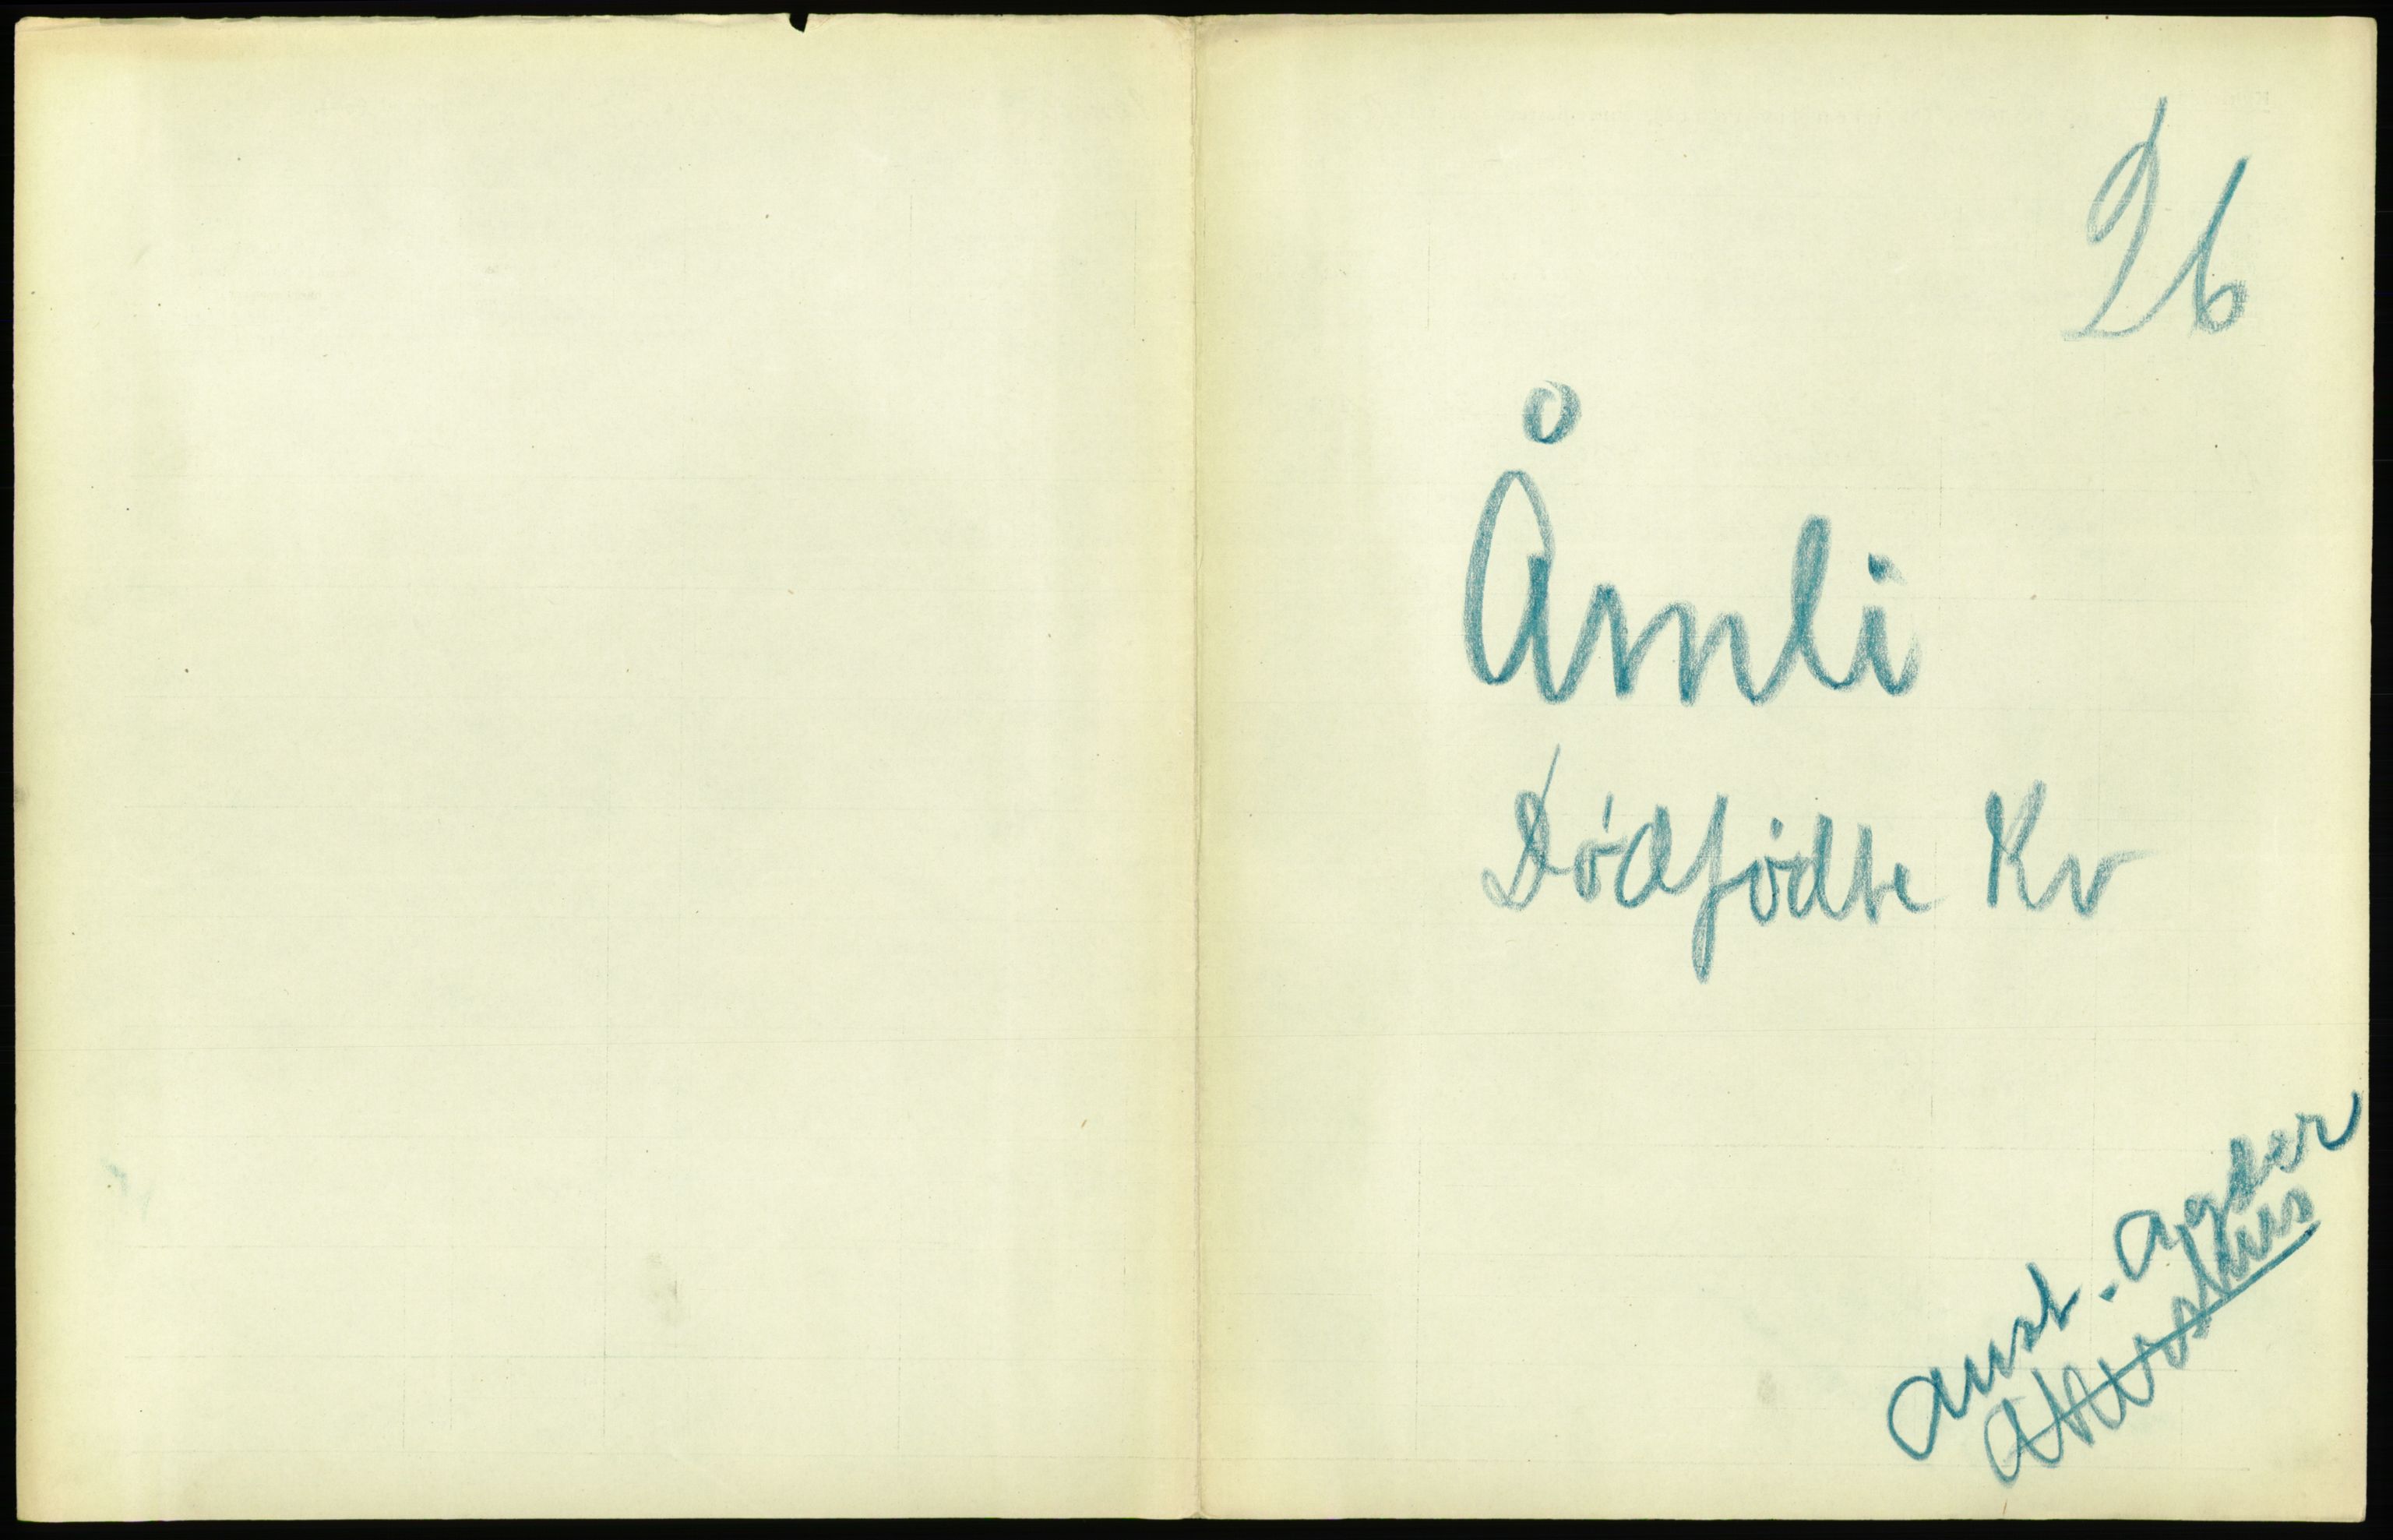 26
Åmli
Dødfødte Kv
Aust-Agder
Akershus